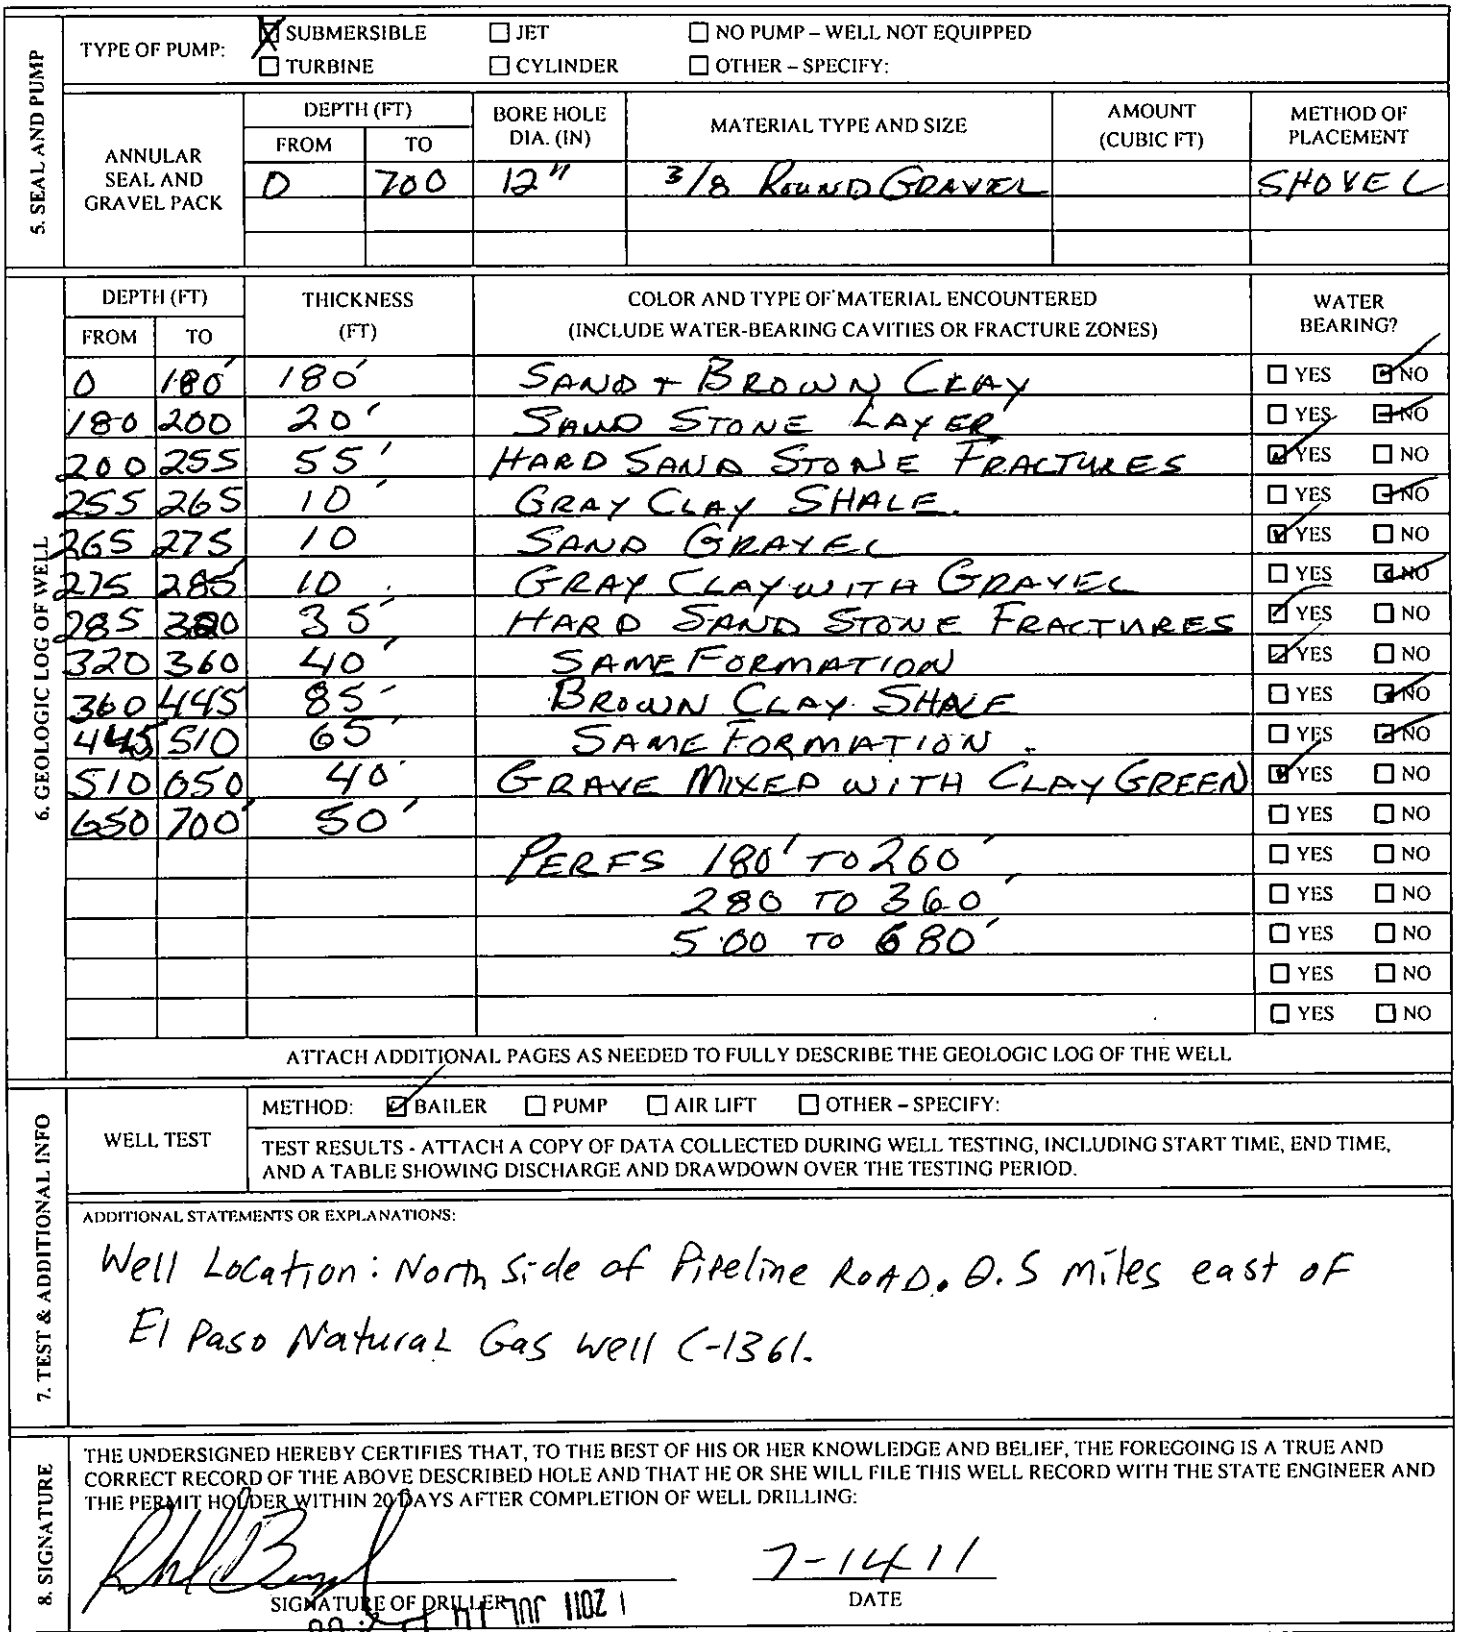 5. SEAL AND PUMP
TYPE OF PUMP: ☒ SUBMERSIBLE ☐ JET ☐ NO PUMP – WELL NOT EQUIPPED
☐ TURBINE ☐ CYLINDER ☐ OTHER – SPECIFY:
ANNULAR SEAL AND GRAVEL PACK
DEPTH (FT) BORE HOLE DIA. (IN) MATERIAL TYPE AND SIZE AMOUNT (CUBIC FT) METHOD OF PLACEMENT
FROM TO
0 700 12" 3/8 ROUND GRAVEL SHOVEL
6. GEOLOGIC LOG OF WELL
DEPTH (FT) THICKNESS (FT) COLOR AND TYPE OF MATERIAL ENCOUNTERED WATER BEARING?
FROM TO (INCLUDE WATER-BEARING CAVITIES OR FRACTURE ZONES)
0 180' 180' SAND + BROWN CLAY ☐ YES ☑ NO
180 200 20' SAND STONE LAYER ☐ YES ☑ NO
200 255 55' HARD SAND STONE FRACTURES ☑ YES ☐ NO
255 265 10' GRAY CLAY SHALE. ☐ YES ☑ NO
265 275 10 SAND GRAVEL ☑ YES ☐ NO
275 285' 10 GRAY CLAY WITH GRAVEL ☐ YES ☑ NO
285 320 35' HARD SAND STONE FRACTURES ☑ YES ☐ NO
320 360 40' SAME FORMATION ☑ YES ☐ NO
360 445 85' BROWN CLAY SHALE ☐ YES ☑ NO
445 510 65' SAME FORMATION. ☐ YES ☑ NO
510 650 40' GRAVE MIXED WITH CLAY GREEN ☑ YES ☐ NO
650 700' 50' ☐ YES ☐ NO
PERFS 180' TO 260' ☐ YES ☐ NO
280 TO 360' ☐ YES ☐ NO
500 TO 680' ☐ YES ☐ NO
☐ YES ☐ NO
☐ YES ☐ NO
ATTACH ADDITIONAL PAGES AS NEEDED TO FULLY DESCRIBE THE GEOLOGIC LOG OF THE WELL
7. TEST & ADDITIONAL INFO
WELL TEST
METHOD: ☑ BAILER ☐ PUMP ☐ AIR LIFT ☐ OTHER – SPECIFY:
TEST RESULTS - ATTACH A COPY OF DATA COLLECTED DURING WELL TESTING, INCLUDING START TIME, END TIME,
AND A TABLE SHOWING DISCHARGE AND DRAWDOWN OVER THE TESTING PERIOD.
ADDITIONAL STATEMENTS OR EXPLANATIONS:
Well Location: North Side of Pipeline ROAD. 0.5 miles east of
El Paso Natural Gas well C-1361.
8. SIGNATURE
THE UNDERSIGNED HEREBY CERTIFIES THAT, TO THE BEST OF HIS OR HER KNOWLEDGE AND BELIEF, THE FOREGOING IS A TRUE AND
CORRECT RECORD OF THE ABOVE DESCRIBED HOLE AND THAT HE OR SHE WILL FILE THIS WELL RECORD WITH THE STATE ENGINEER AND
THE PERMIT HOLDER WITHIN 20 DAYS AFTER COMPLETION OF WELL DRILLING:
7-14-11
SIGNATURE OF DRILLER DATE
2011 JUL 14